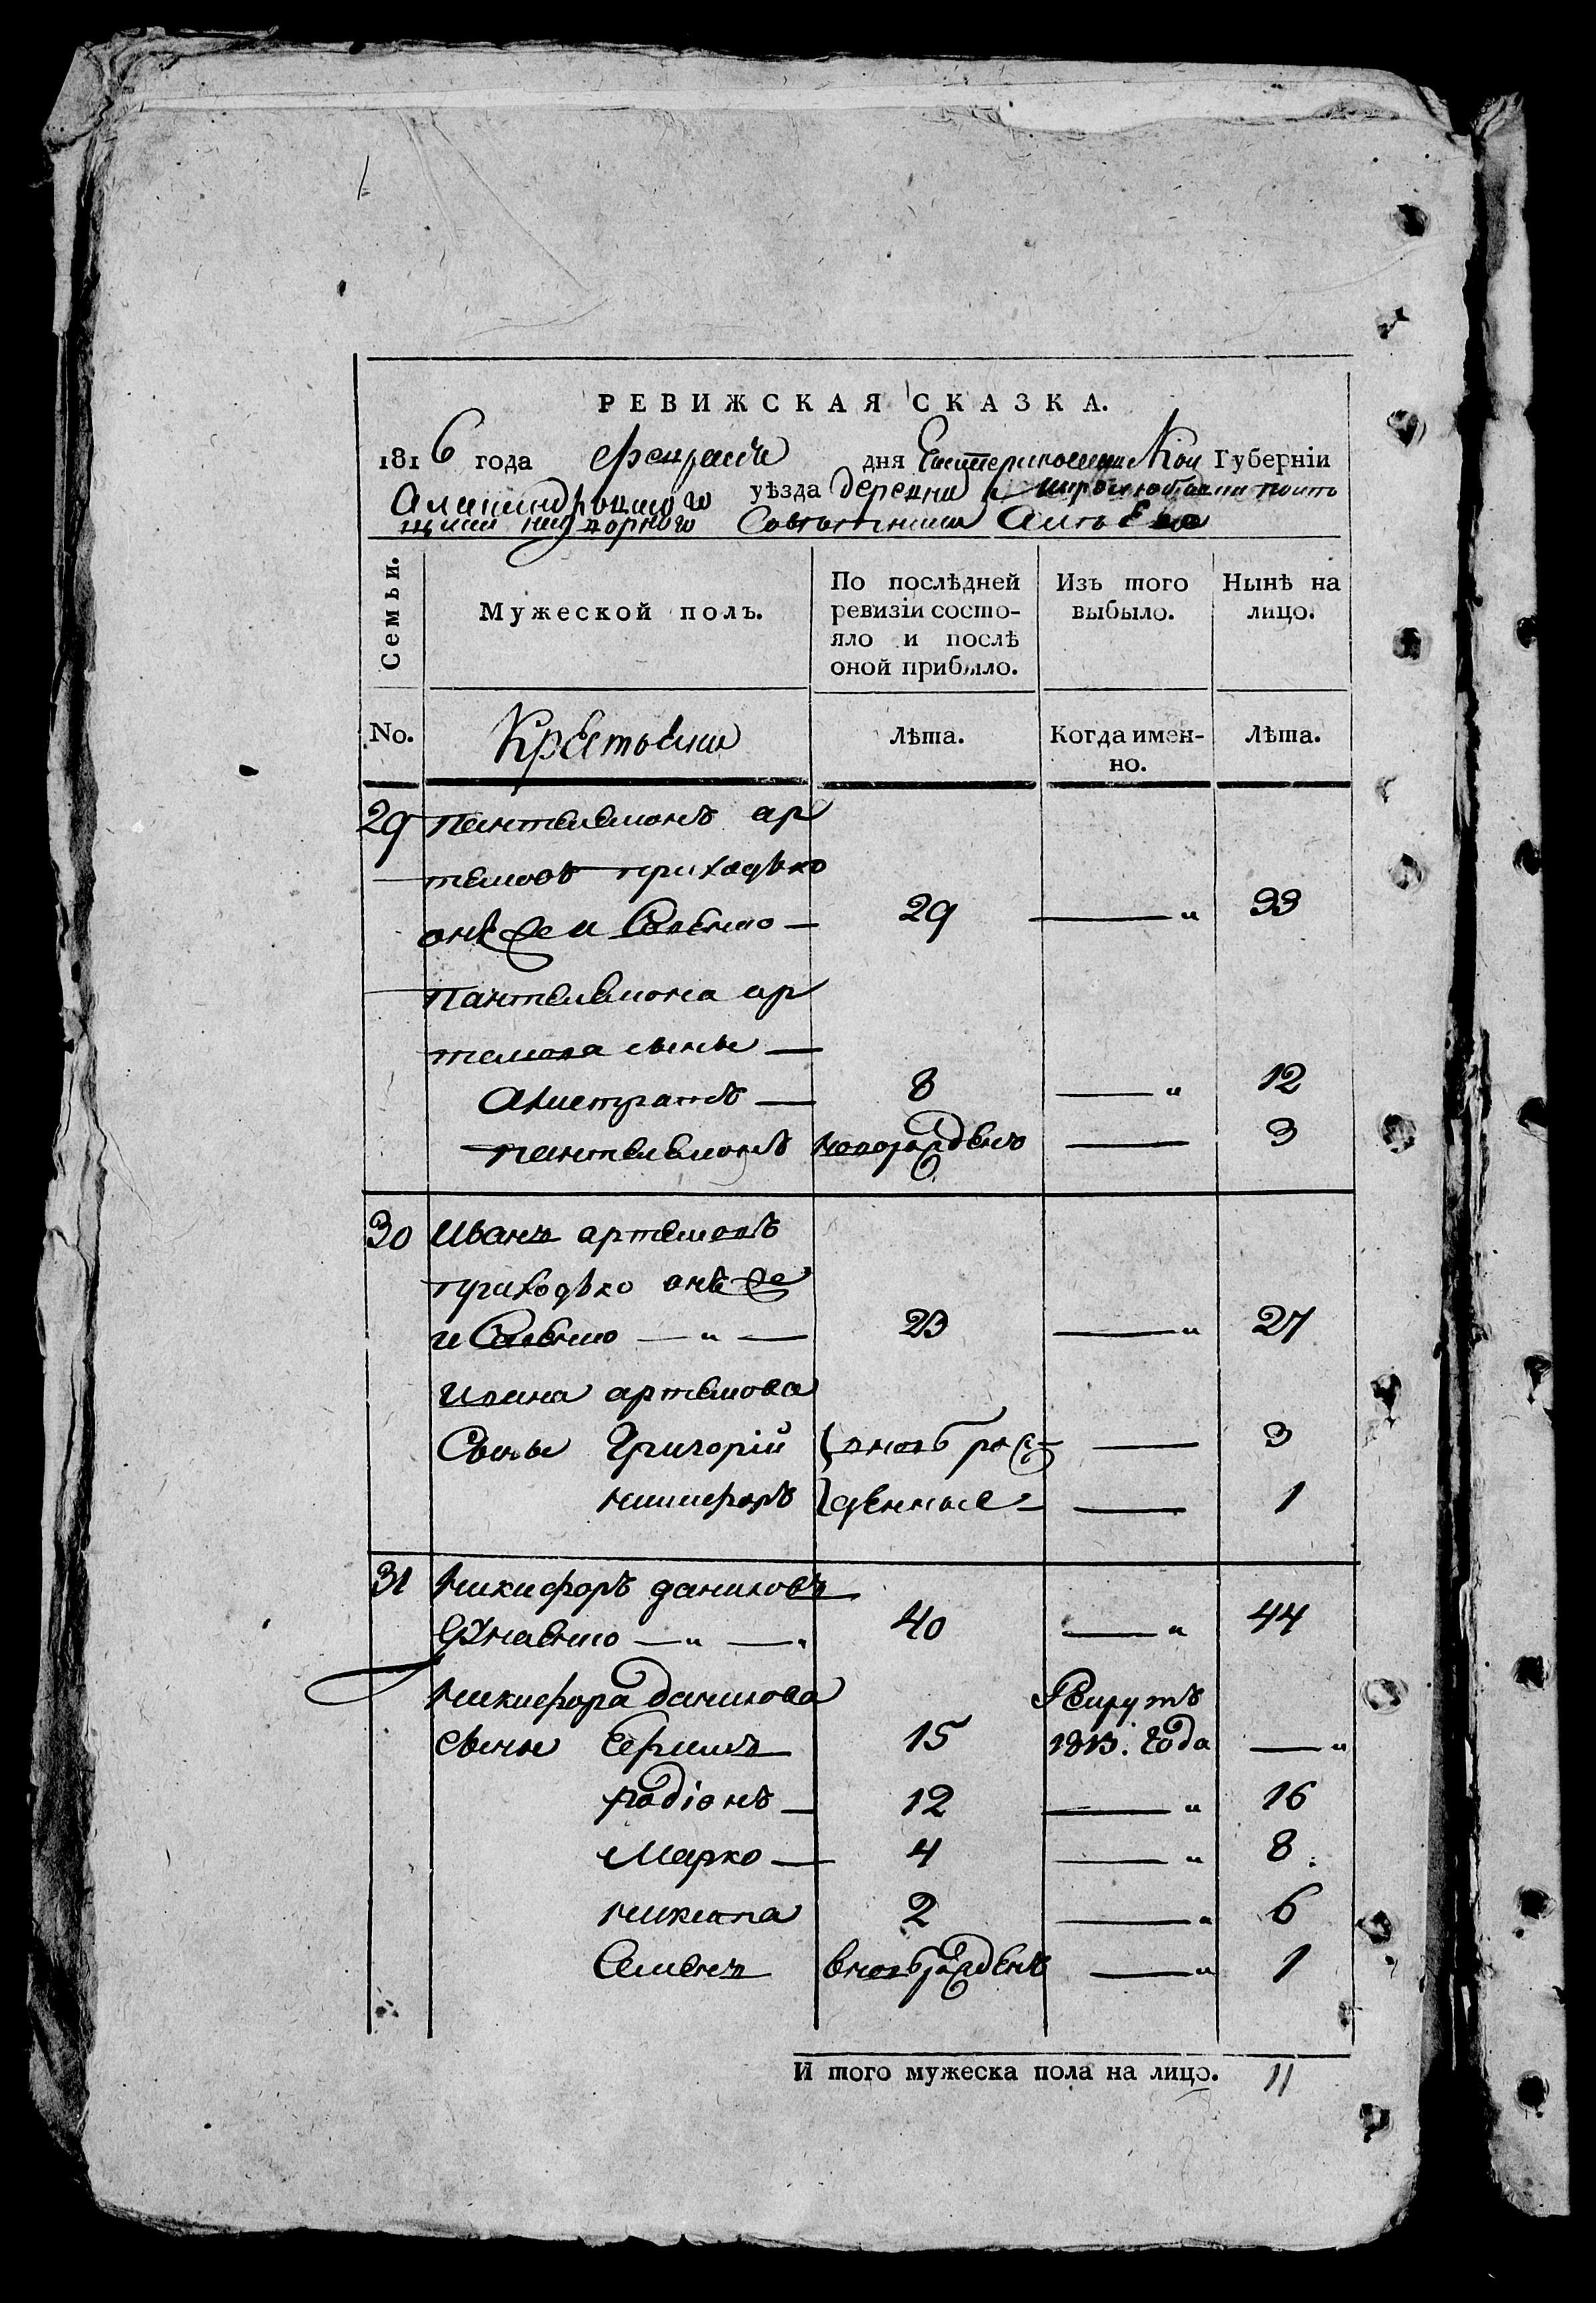 РЕВИЖСКАЯ СКАЗКА.
1816 года февраля дня Екатеринославской Губерніи
Александровского уѣзда деревни
надворного Советника
Семьи.
Мужеской полъ.
По послѣдней ревизіи состояло и послѣ оной прибыло.
Изъ того выбыло.
Нынѣ на лицо.
No.
Крестьяни
лѣта.
Когда именно.
лѣта.
29 пантелемонъ ар
темовъ приходько
онъ же и 29 — 33
пантелемона ар
темова сынъ —
8 — 12
пантелемонъ новорожденъ — 3
30 Иванъ артемовъ
приходько онъ же
и 23 — 27
Ивана артемова
Сыны Григорій вновь рож — 3
никифоръ денные — 1
31 никифоръ даниловъ
40 — 44
никифора данилова Рекрутъ
сыны Ефимъ 15 1813. года —
родіонъ — 12 — 16
Марко — 4 — 8
никита 2 — 6
Семенъ вновьрожденъ — 1
И того мужеска пола на лицо. 11